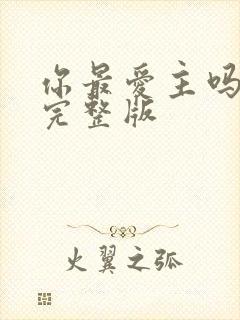 你最爱主吗
完整版
火翼之弧